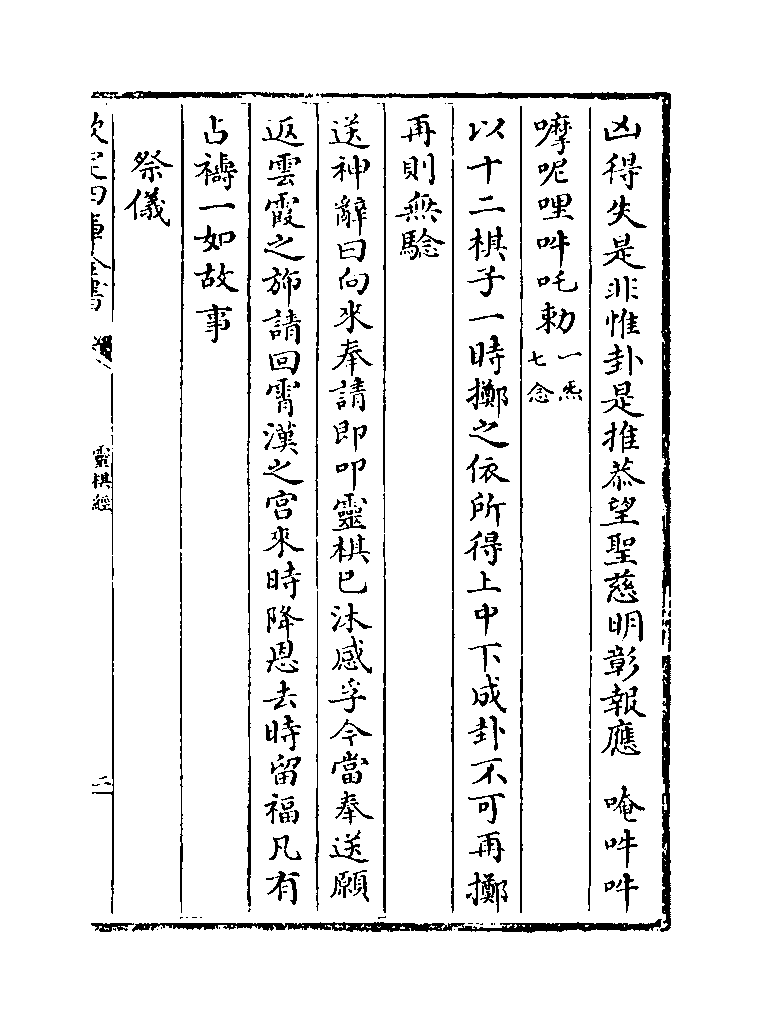 凶得失是非惟卦是推恭望聖慈明彰報應　唵吽吽
嚤呢哩吽吒勅一炁七念
以十二棋子一時擲之依所得上中下成卦不可再擲
再則無騐
送神辭曰向來奉請即叩靈棋已沐感孚今當奉送願
返雲霞之斾請回霄漢之宫來時降恩去時留福凡有
占禱一如故事
祭儀
欽定四庫全書
靈棋經
二